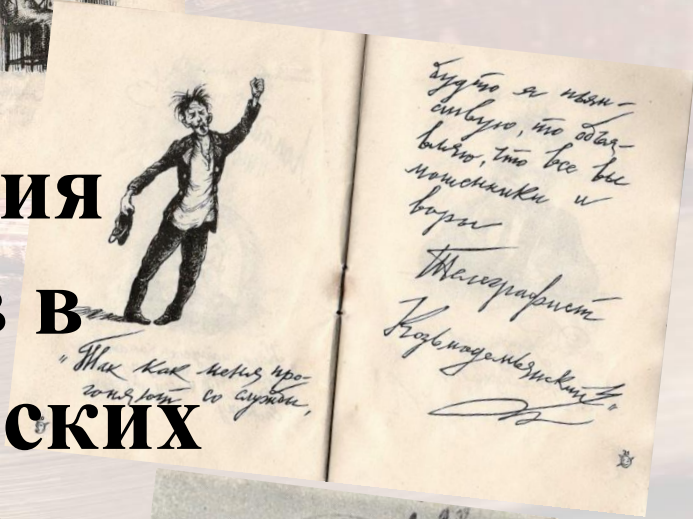 ия
в в
ских
"Так как меня про-
гоняют со службы,
будто я пьян-
ствую, то объя-
вляю, что все вы
мошенники и
воры
Телеграфист
Козьмодемьянский"